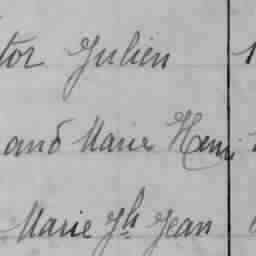 tor Julien 1
and Marie Henri
Marie Jh Jean